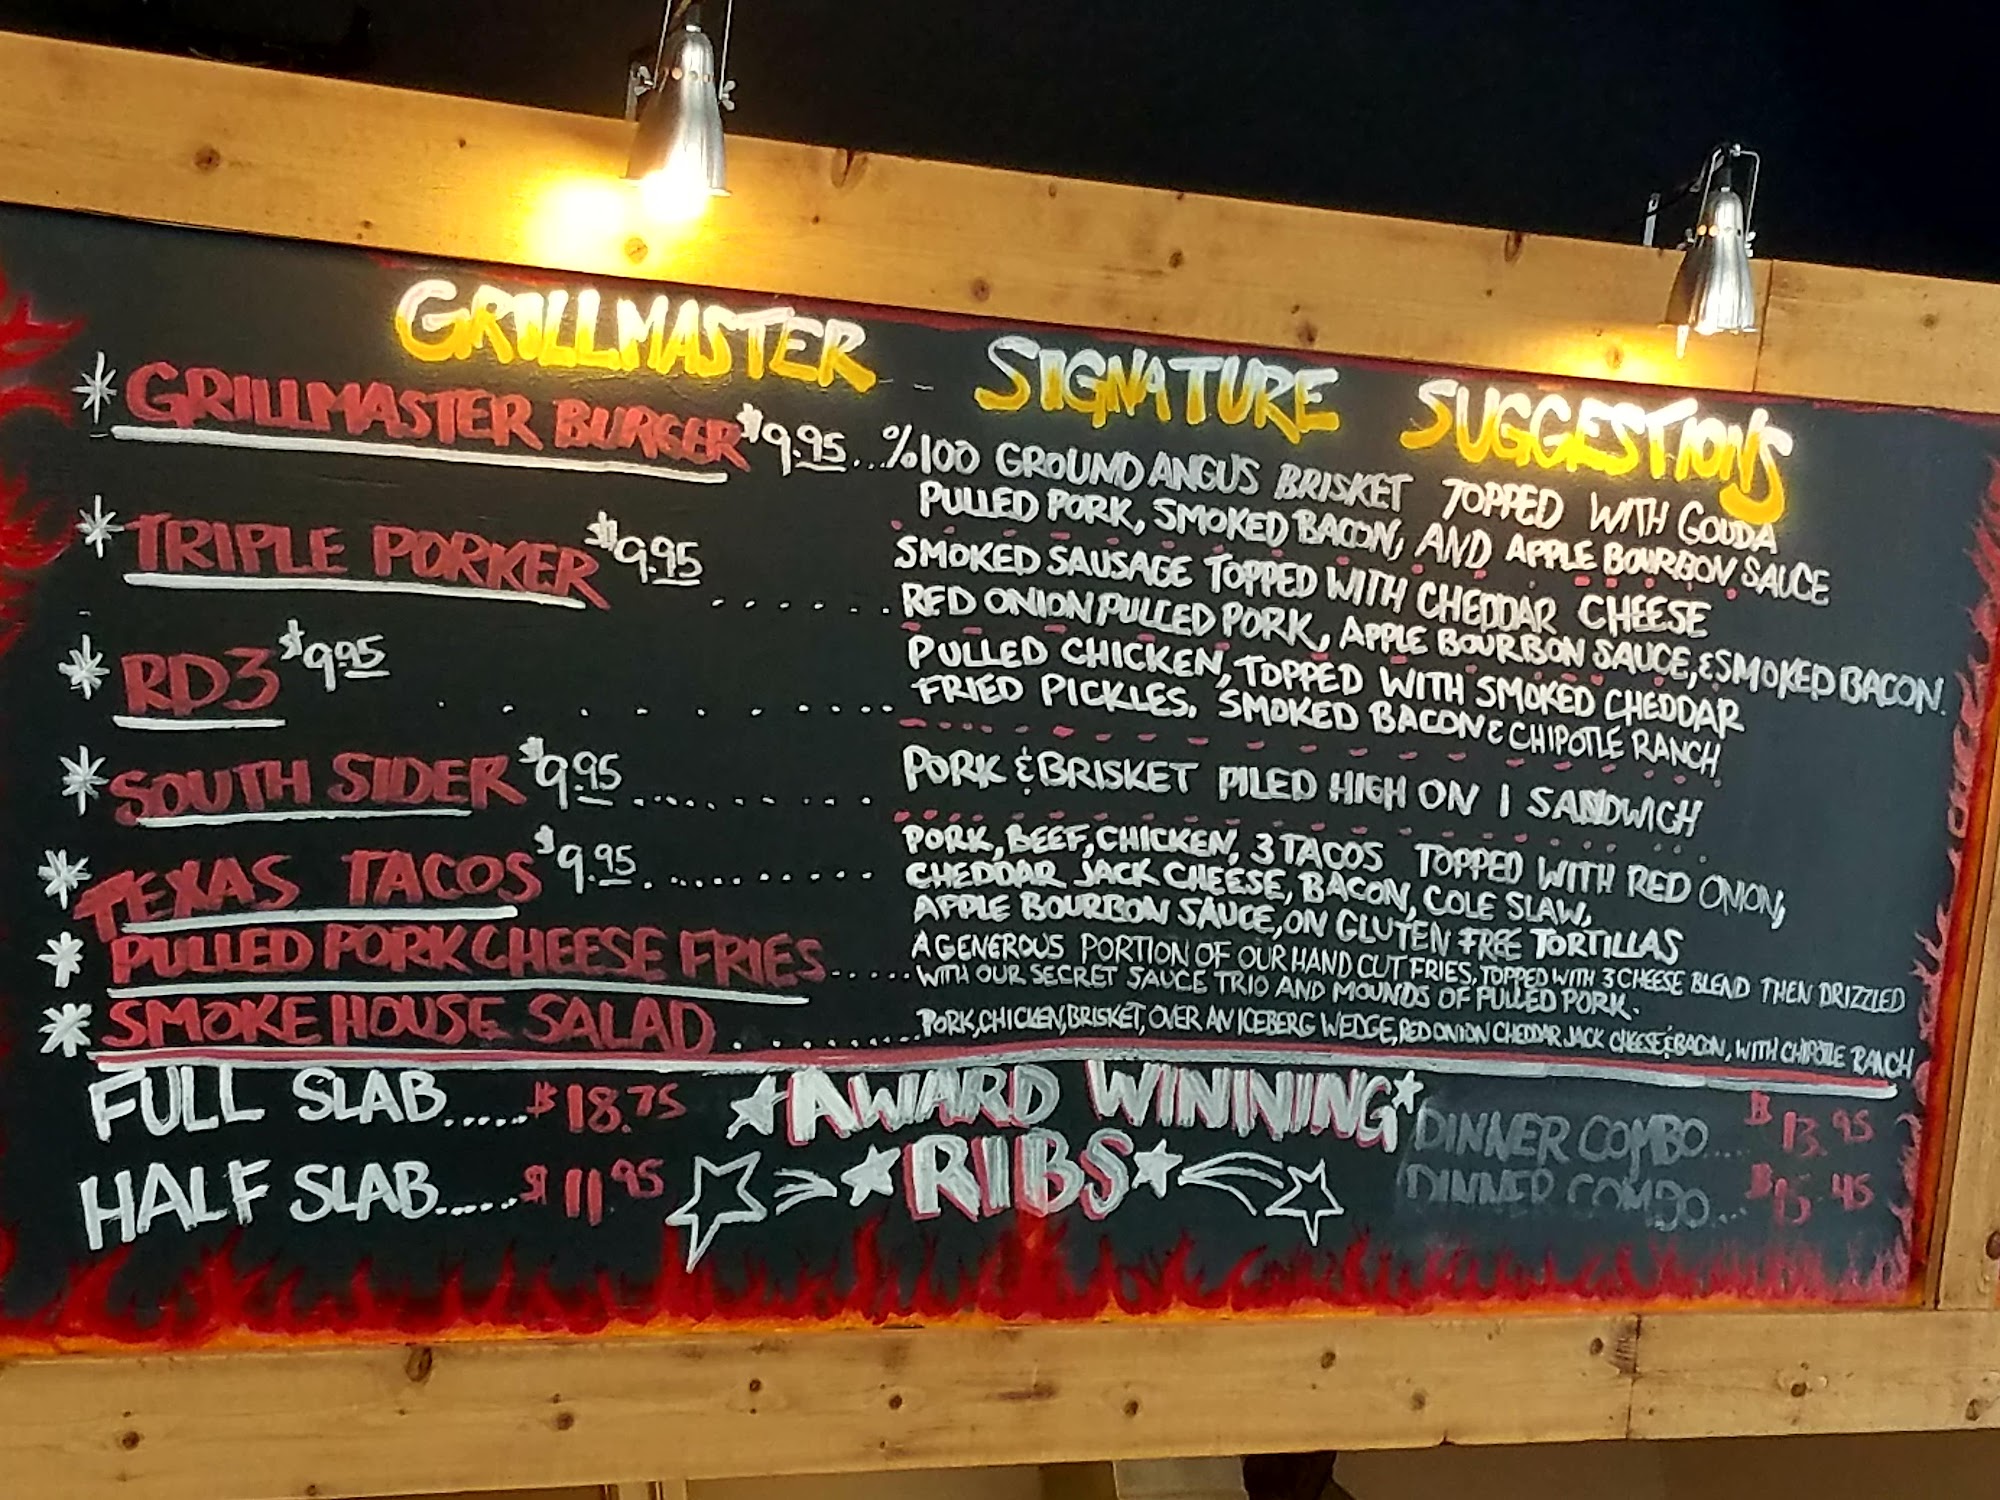 GRILLMASTER SIGNATURE SUGGESTIONS
* GRILLMASTER BURGER $9.95... %100 GROUND ANGUS BRISKET TOPPED WITH GOUDA
PULLED PORK, SMOKED BACON, AND APPLE BOURBON SAUCE
* TRIPLE PORKER $9.95 ...... SMOKED SAUSAGE TOPPED WITH CHEDDAR CHEESE
RED ONION PULLED PORK, APPLE BOURBON SAUCE, & SMOKED BACON.
* RD3 $9.95 ......... PULLED CHICKEN, TOPPED WITH SMOKED CHEDDAR
FRIED PICKLES, SMOKED BACON & CHIPOTLE RANCH
* SOUTH SIDER $9.95 ......... PORK & BRISKET PILED HIGH ON 1 SANDWICH
* TEXAS TACOS $9.95 .......... PORK, BEEF, CHICKEN, 3 TACOS TOPPED WITH RED ONION,
CHEDDAR JACK CHEESE, BACON, COLE SLAW,
APPLE BOURBON SAUCE, ON GLUTEN FREE TORTILLAS
* PULLED PORK CHEESE FRIES ..... A GENEROUS PORTION OF OUR HAND CUT FRIES, TOPPED WITH 3 CHEESE BLEND THEN DRIZZLED
WITH OUR SECRET SAUCE TRIO AND MOUNDS OF PULLED PORK.
* SMOKE HOUSE SALAD .......... PORK, CHICKEN, BRISKET, OVER AN ICEBERG WEDGE, RED ONION CHEDDAR JACK CHEESE & BACON, WITH CHIPOTLE RANCH
FULL SLAB..... $18.75
HALF SLAB..... $11.95
AWARD WINNING
RIBS
DINNER COMBO.... $13.95
DINNER COMBO... $15.45